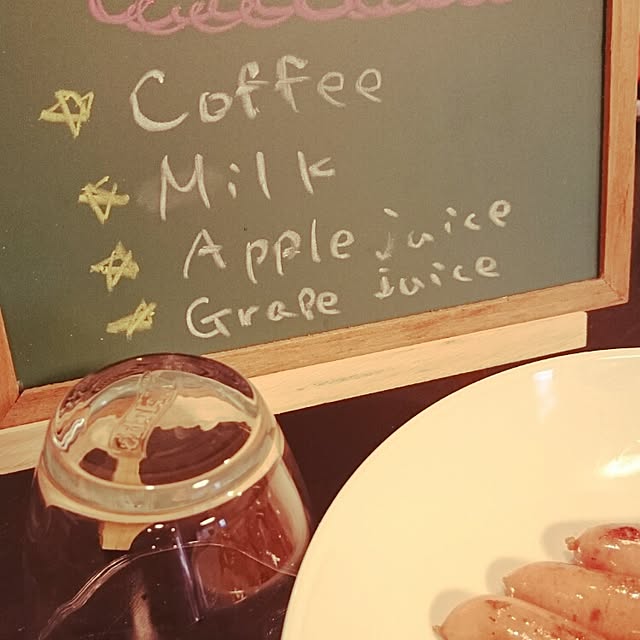 Coffee
Milk
Apple juice
Grape juice